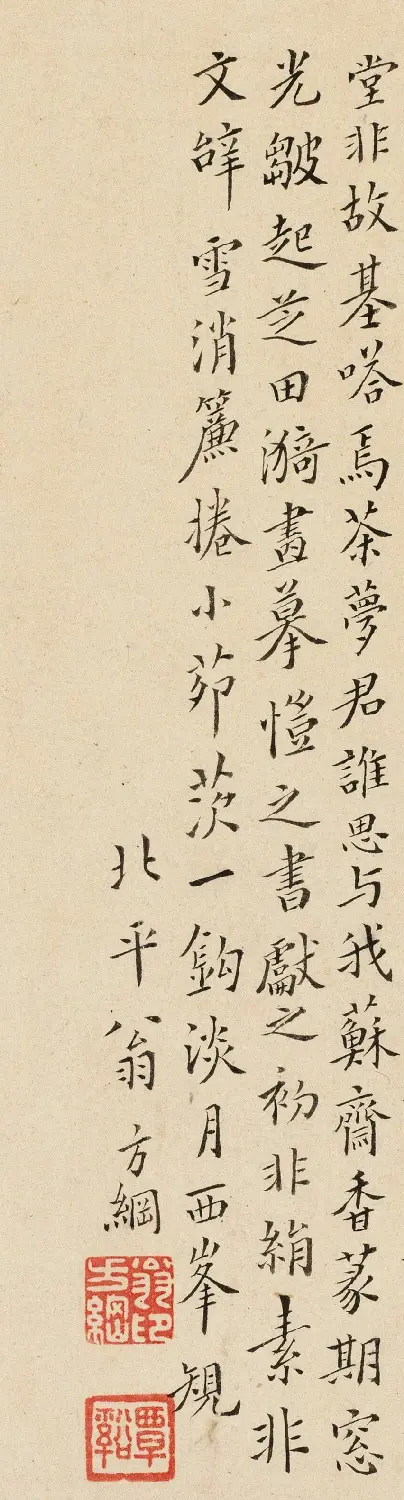 堂非故基嗒焉茶夢君誰思与我蘇齋香篆期窓
光皺起芝田漪畫摹愷之書獻之初非絹素非
文辝雪消簾捲小茆茨一鉤淡月西峯覛
北平翁方綱
翁方綱印
覃谿